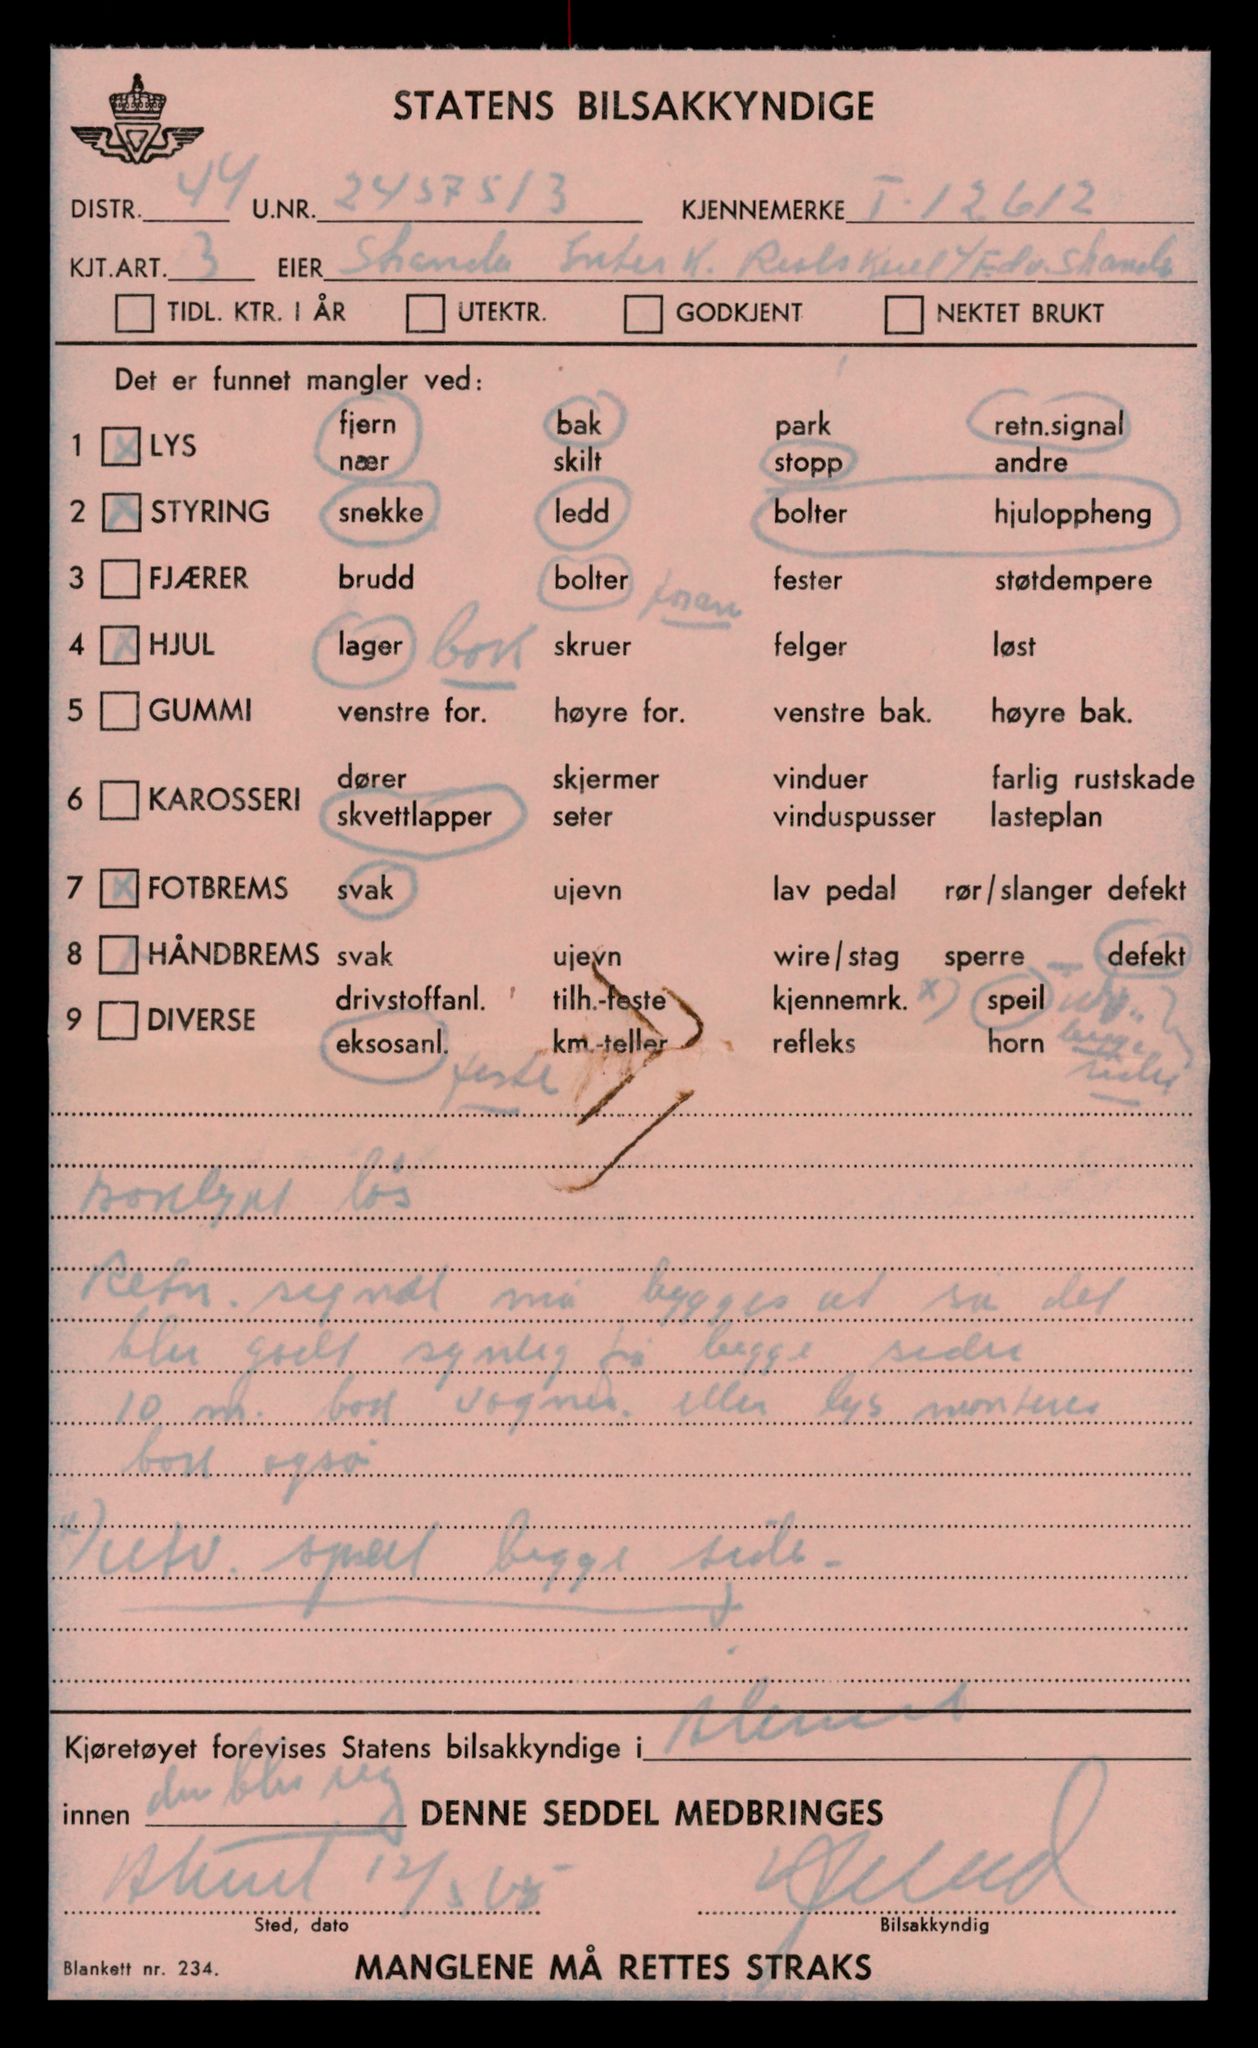 STATENS BILSAKKYNDIGE
DISTR. 44 U.NR. 2457513 KJENNEMERKE T-12612
KJT.ART. 3 EIER Stranda K.
TIDL. KTR. I ÅR UTEKTR. GODKJENT NEKTET BRUKT
Det er funnet mangler ved:
fjern bak park retn.signal
1 x LYS
nær skilt stopp andre
2 x STYRING snekke ledd bolter hjuloppheng
3 FJÆRER brudd bolter foran fester støtdempere
4 x HJUL lager bak skruer felger løst
5 GUMMI venstre for. høyre for. venstre bak. høyre bak.
dører skjermer vinduer farlig rustskade
6 KAROSSERI
skvettlapper seter vinduspusser lasteplan
7 x FOTBREMS svak ujevn lav pedal rør/slanger defekt
8 HÅNDBREMS svak ujevn wire/stag sperre defekt
drivstoffanl. tilh.-feste kjennemrk. x) speil utv.
9 DIVERSE
eksosanl. km.-teller refleks horn begge
feste sider
løs
Retn. signal må bygges ut så det
blir godt synleg på begge sider
10 m. bak vogner. eller lys monteres
bak også
x) utv. speil begge sider
Kjøretøyet forevises Statens bilsakkyndige i
innen DENNE SEDDEL MEDBRINGES
12/5
Sted, dato Bilsakkyndig
Blankett nr. 234. MANGLENE MÅ RETTES STRAKS